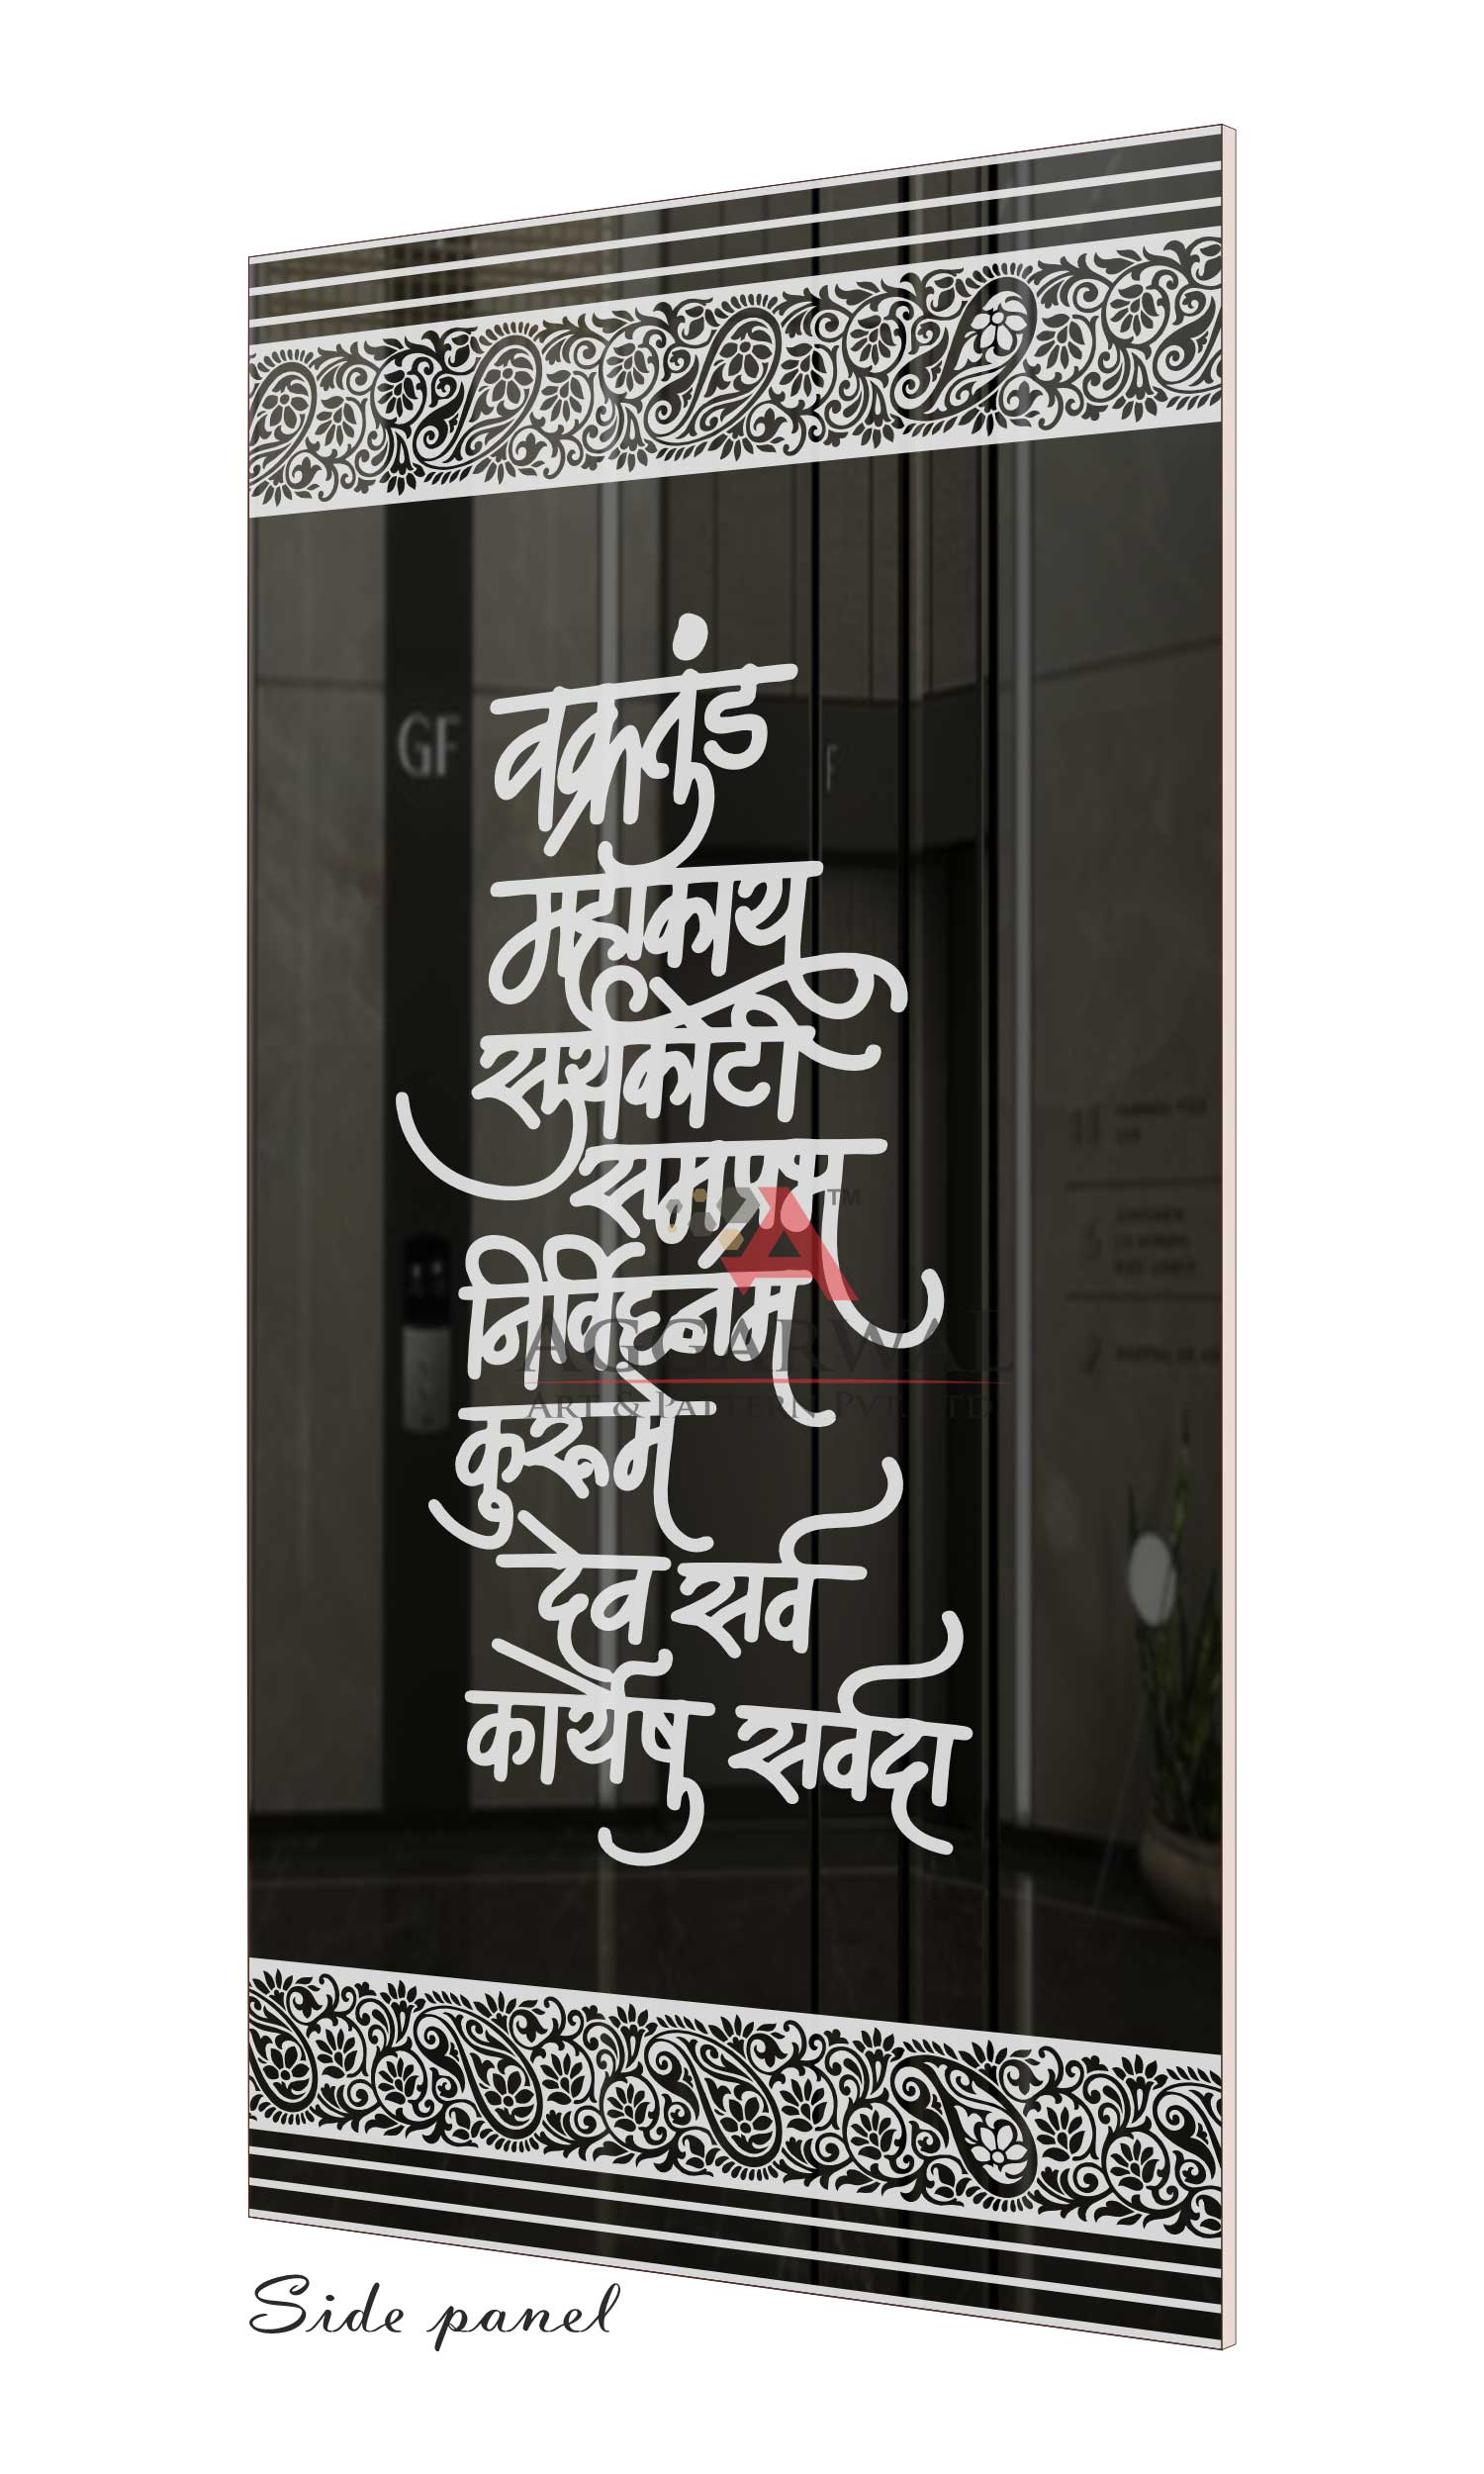 वक्रतुंड
महाकाय
सुर्यकोटी
समप्रभ
निर्विघ्नम
कुरूमे
देव सर्व
कार्येषु सर्वदा
GF
F
TM
AGGARWAL
ART & PATTERN PVT. LTD
Side panel